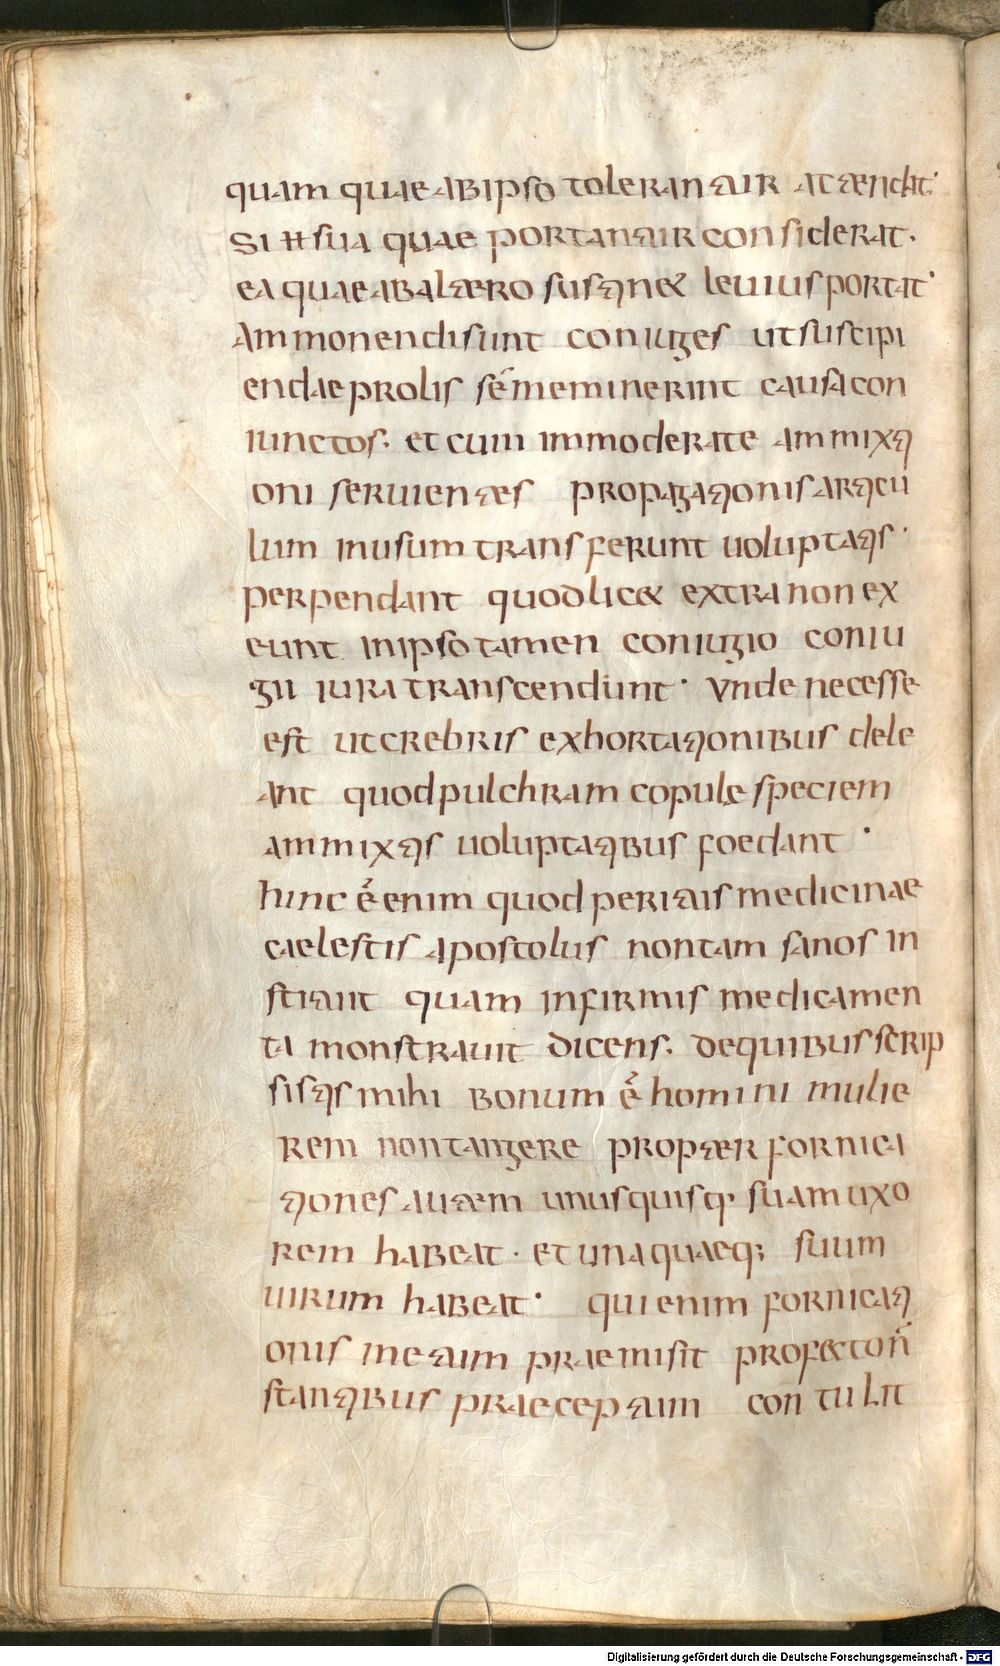 quam quae ab ipso tolerantur attendit.
Si n̄ sua quae portantur considerat.
ea quae ab altero sustinet levius portat.
Ammonendi sunt coniuges ut suscipi
endae prolis sē meminerint causa con
iunctos. et cum immoderate ammixti
oni servientes propagationis articu
lum in usum transferunt voluptatis.
perpendant quod licet extra non ex
eunt in ipso tamen coniugio coniu
gii iura transcendunt. Unde necesse
est ut crebris exhortationibus dele
ant quod pulchram copulę speciem
ammixtis voluptatibus foedant.
hinc ē enim quod peritus medicinae
caelestis apostolus non tam sanos in
stituit quam infirmis medicamen
ta monstravit dicens. de quibus scrip
sistis mihi bonum ē homini mulie
rem non tangere propter fornica
tiones autem unusquisq· suam uxo
rem habeat. et unaquaeq; suum
virum habeat. qui enim fornicati
onis metum praemisit profecto n̄
stantibus praeceptum contulit
Digitalisierung gefördert durch die Deutsche Forschungsgemeinschaft - DFG